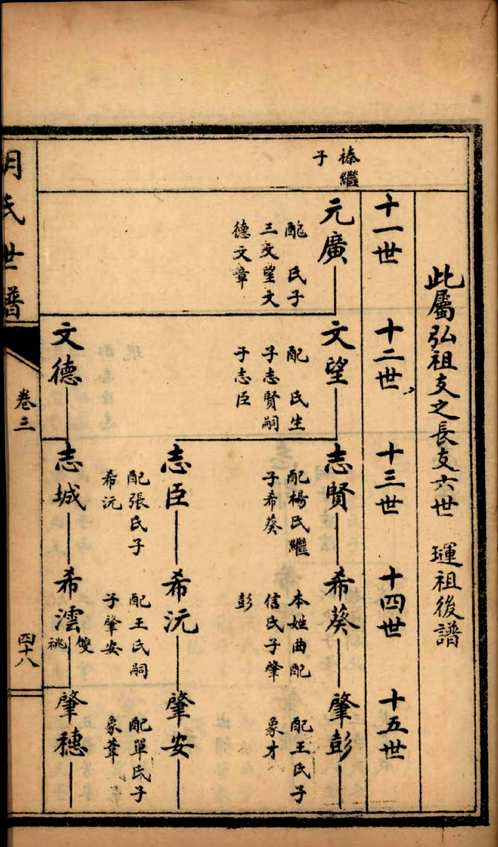 此屬弘祖支之長支六世 琿祖後譜
十一世
十二世
十三世
十四世
十五世
榛繼
子
元廣
配 氏子
三文望文
德文章
文望
配 氏生
子志賢嗣
子志臣
志賢
配楊氏繼
子希葵
希葵
本姓曲配
信氏子肇
彭
肇彭
配王氏子
象才
志臣
配張氏子
希沅
希沅
配王氏嗣
子肇安
肇安
配單氏子
象葦
文德
志城
希澐
雙
祧
肇穗
氏世譜
卷三
四十八